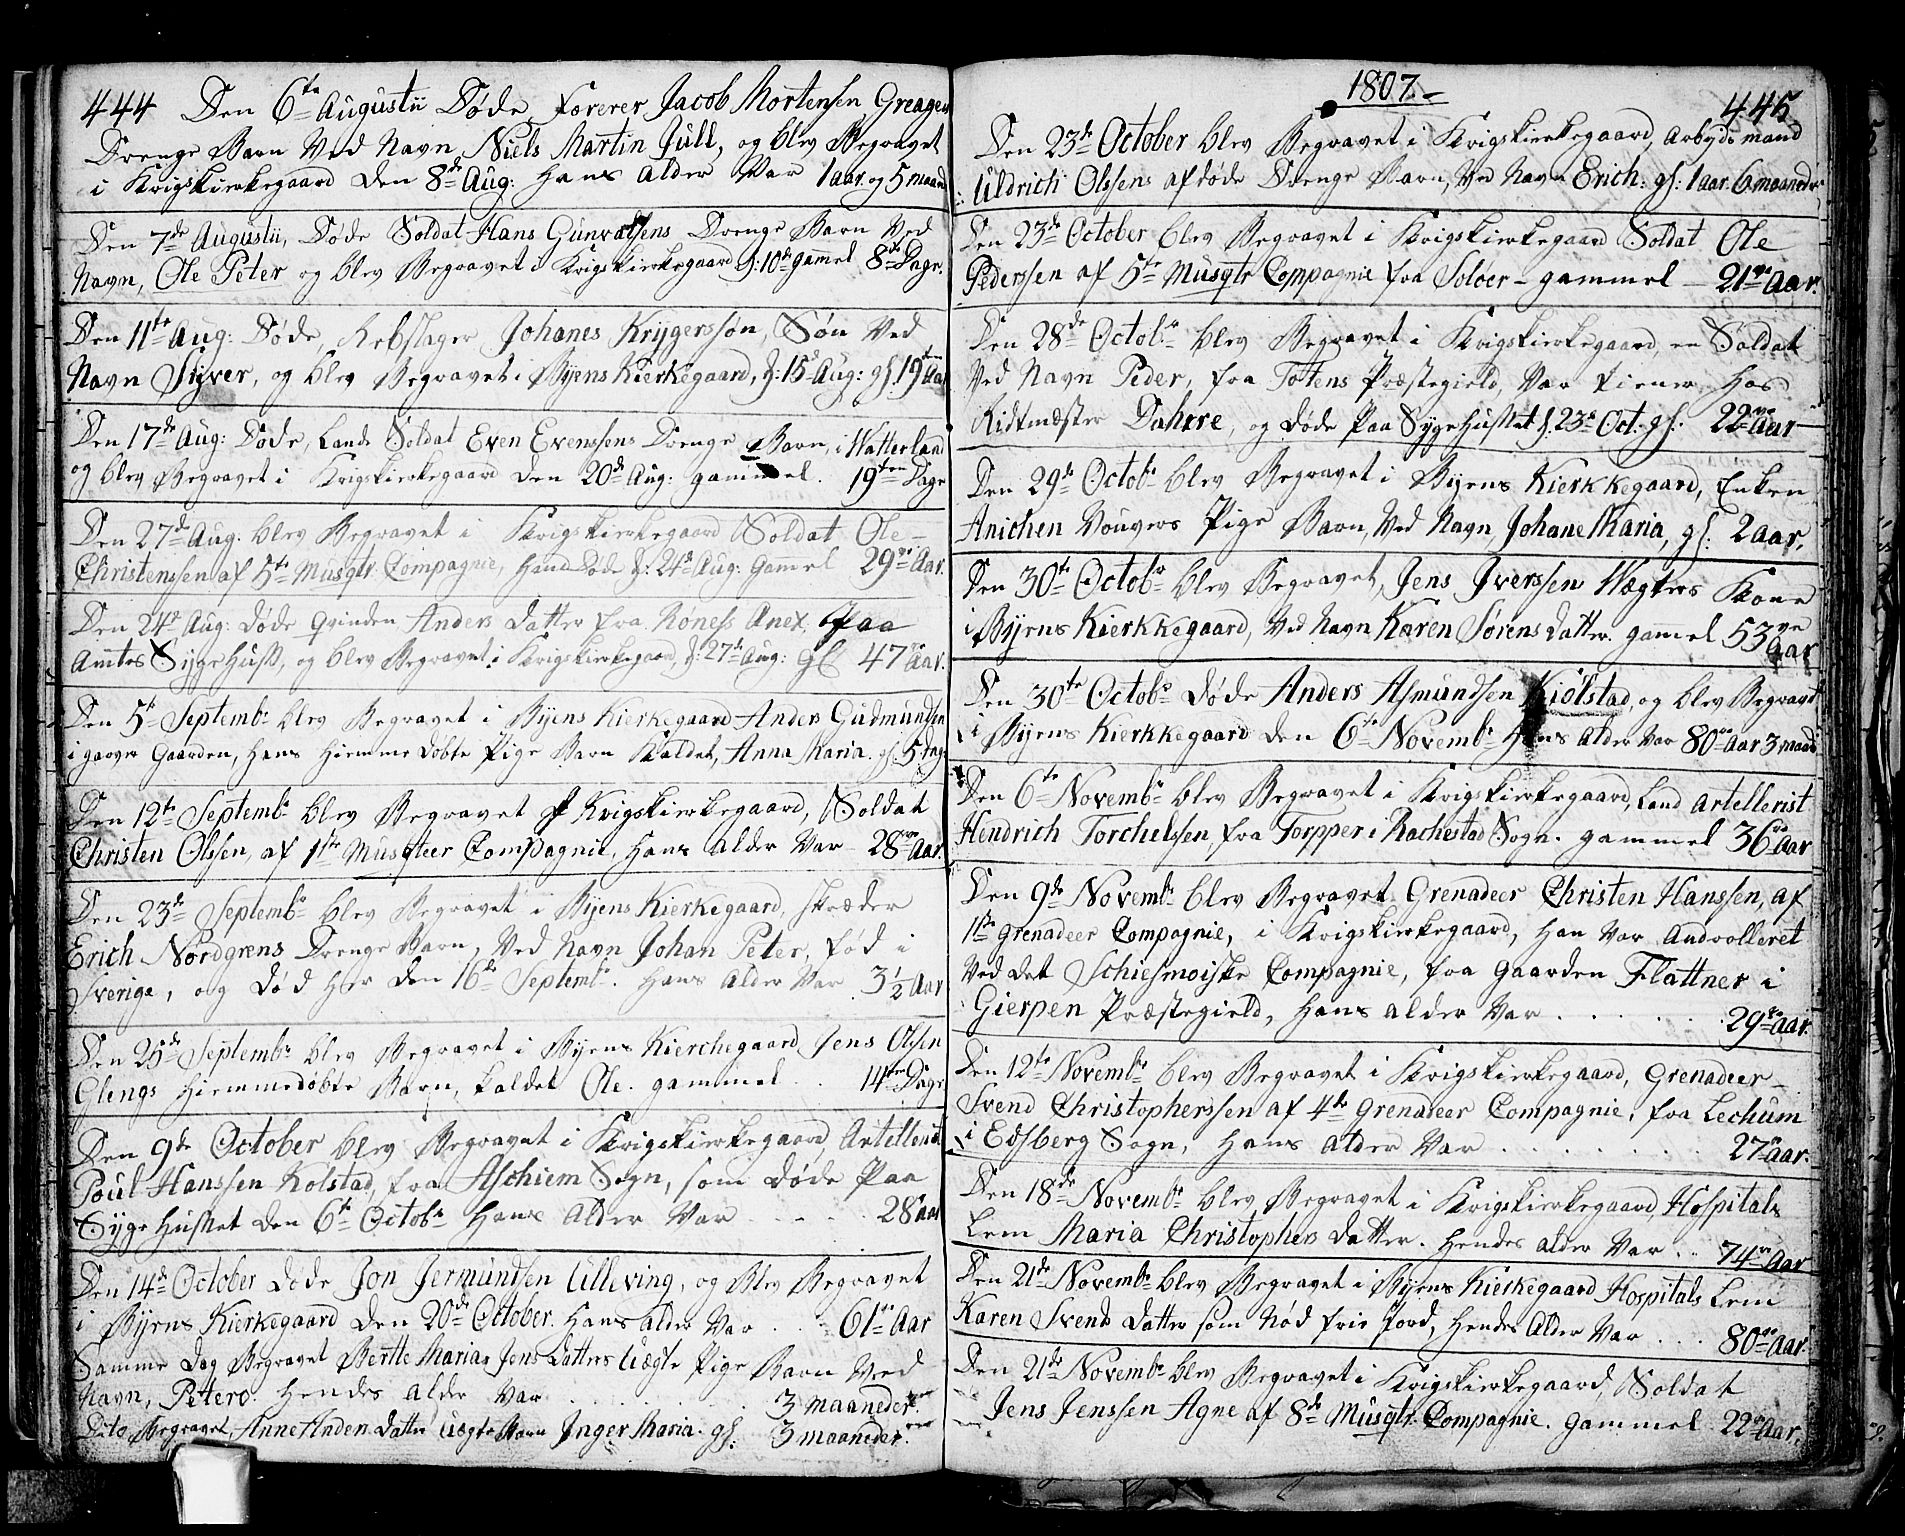 444 Den 6te Augustii Døde, Forerer Jacob Mortensen Greagers
Drenge Barn Ved Navn Niels Martin Jull, og blev Begravet
i Krigskierkegaard den 8de Aug: Hans Alder Var 1 aar og 5 maan
Den 7de Augustii, Døde Soldat Hans Gunvaldsens Drenge Barn Ved
Navn, Ole Peter og blev Begravet i Krigskierkegaard d: 10de gammel 8te Dage.
Den 11te Aug: Døde, Rebslager Johanes Krygerssøn, Søn Ved
Navn Siver, og blev Begravet i Byens Kierkegaard, d: 15de Aug: gl. 19ten Aar
Den 17de Aug: Døde, Lands Soldat Even Evenssens Drenge Barn, i Watterland
og blev Begravet i Krigskierkegaard den 20de Aug: gammel. 19ten Dage
Den 27de Aug: blev Begravet i Krigskierkegaard Soldat Ole
Christenssen af 5te Musqtr. Compagnie, Hand Døde d: 24de Aug: Gamel 29ve Aar.
Den 24de Aug: døde Qvinden Anders Datter fra Røness Anex, Paa
Amtes Sygehuss, og blev Begravet i Krigskierkegaard, d: 27de Aug: gl 47ve Aar.
Den 5te Septembr. blev Begravet i Byens Kierkegaard Anders Gudmundsen
i garver Gaarden, Hans Hiemme døbte Pige Barn Kaldet, Anna Maria. gl. 5 Dage
Den 12te Septembr. blev Begravet i Krigskierkegaard, Soldat
Christen Olssen, af 1ste Musqteer Compagnie, Hans Alder Var 28ve Aar.
Den 23de Septembr. blev Begravet i Byens Kierkegaard, Skræder
Erich Nordgrens Drenge Barn, Ved Navn Johan Peter, Fød i
Sverige, og død her den 16de Septembr. Hans Alder Var. 3 1/2 Aar
Den 25de Septembr. blev Begravet i Byens Kierchegaard Jens Olssen
Glengs Hiemmedøbte Barn, kaldet Ole. gammel . . 14ten Dage
Den 9de October blev Begravet i Krigskierkegaard, Artellerist
Poul Hanssen Kolstad, fra Aschiem Sogn, som døde Paa
Syge Husset den 6te Octobr. Hans Alder Var 28ve aar
Den 14de October døde Jon Jermundsen Ulleving, og Blev Begravet
i Byens Kierkegaard den 20de October. Hans alder Var . . 61ve Aar
Samme Dag Begravet Berthe Marias Jens datters Uægte Pige Barn Ved
Navn, Petero. Hendes Alder Var . . . . 3 maaneder
Dito Begravet, Anne Anders datter Uægte Barn Inger Maria. gl: 3 maaneder.
1807
445
Den 23de October blev Begravet i Krigskierkegaard, Arbyds mand
Uldrich Olssens afdøde Drenge Barn, Ved Navn Erich: gl: 1 aar. 6 maaneder
Den 23de October blev Begravet i Krigskierkegaard Soldat Ole
Pederssen af 5te Musqtr Compagnie fra Soloer - gammel - 21ve Aar.
Den 28de Octobr. blev Begravet i Krigskierkegaard, en Soldat
Ved Navn Peder, fra Totens Præstegield, Var tiener Hos
Ridtmæster Dahrre, og døde Paa Syge Husset d. 23de Oct. gl. 22ve Aar
Den 29de Octobr. blev Begravet i Byens Kierkkegaard, Enken
Anichen Vouvers Pige Barn, Ved Navn Johane Maria, gl: 2 aar.
Den 30te Octobr. blev Begravet, Jens Iverssen Wægters Kone
i Byens Kierkkegaard, Ved Navn Karen Sørens datter. gammel 53ve Aar
Den 30te Octobr. døde Anders Asmundsen Kiølstad, og blev Begravet
i Byens Kierkkegaard den 6te Novembr. Hans Alder Var 80ve Aar 3 maand
Den 6te Novembr. blev Begravet i Krigskierkegaard, Land artellerist
Hendrich Torchelssen, fra Torpper i Rachestad Sogn. gammel 36ve Aar
Den 9de Novembr. blev Begravet Grenadeer Christen Hanssen, af
1ste grenadeer Compagnie, i Krigskierkegaard, Han Var Androlleret
Ved det Schiesmoiske Compagnie, fra gaarden Flattner i
Gierpen Præstegield, Hans alder Var . . . . . . 29ve Aar.
Den 12te Novembr. blev Begravet i Krigskierkegaard, Grenadeer
Svend Christopherssen af 4de grenadeer Compagnie, fra Lechum
i Edsberg Sogn, Hans Alder Var . . . . . . . 27ve Aar.
Den 18de Novembr. blev Begravet i Krigskierkegaard, Hospitals
Lem Maria Christophers datter. Hendes alder Var . . 74ve Aar
Den 21de Novembr. blev Begravet i Byens Kierkegaard Hospitals Lem
Karen Svends datter som Nød frie Jord, Hendes Alder Var . . . 80ve Aar.
Den 21de Novembr. blev Begravet i Krigskierkegaard, Soldat
Jens Jenssen Agne af 8de Musqtr. Compagnie. gammel 22ve Aar.